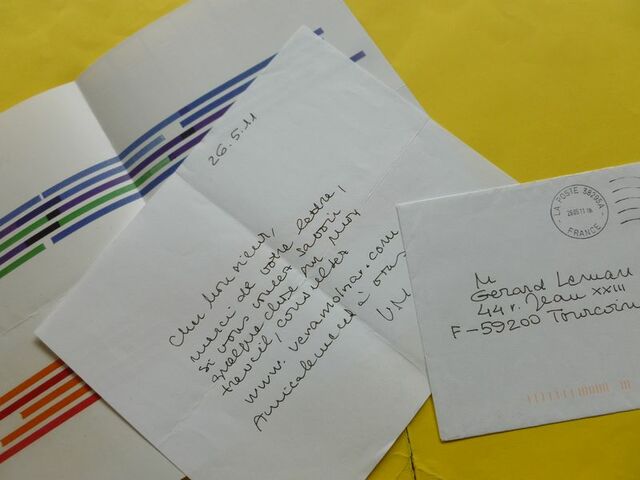 26.5.11
Cher Monsieur,
merci de votre lettre,
si vous voulez savoir
quelque chose sur mon
travail, consultez
www.veramolnar.com
Amicalement à vous
VM
LA POSTE 38295A
26 05 11
FRANCE
M
Gérard Leman
44 r. Jean XXIII
F-59200 Tourcoin